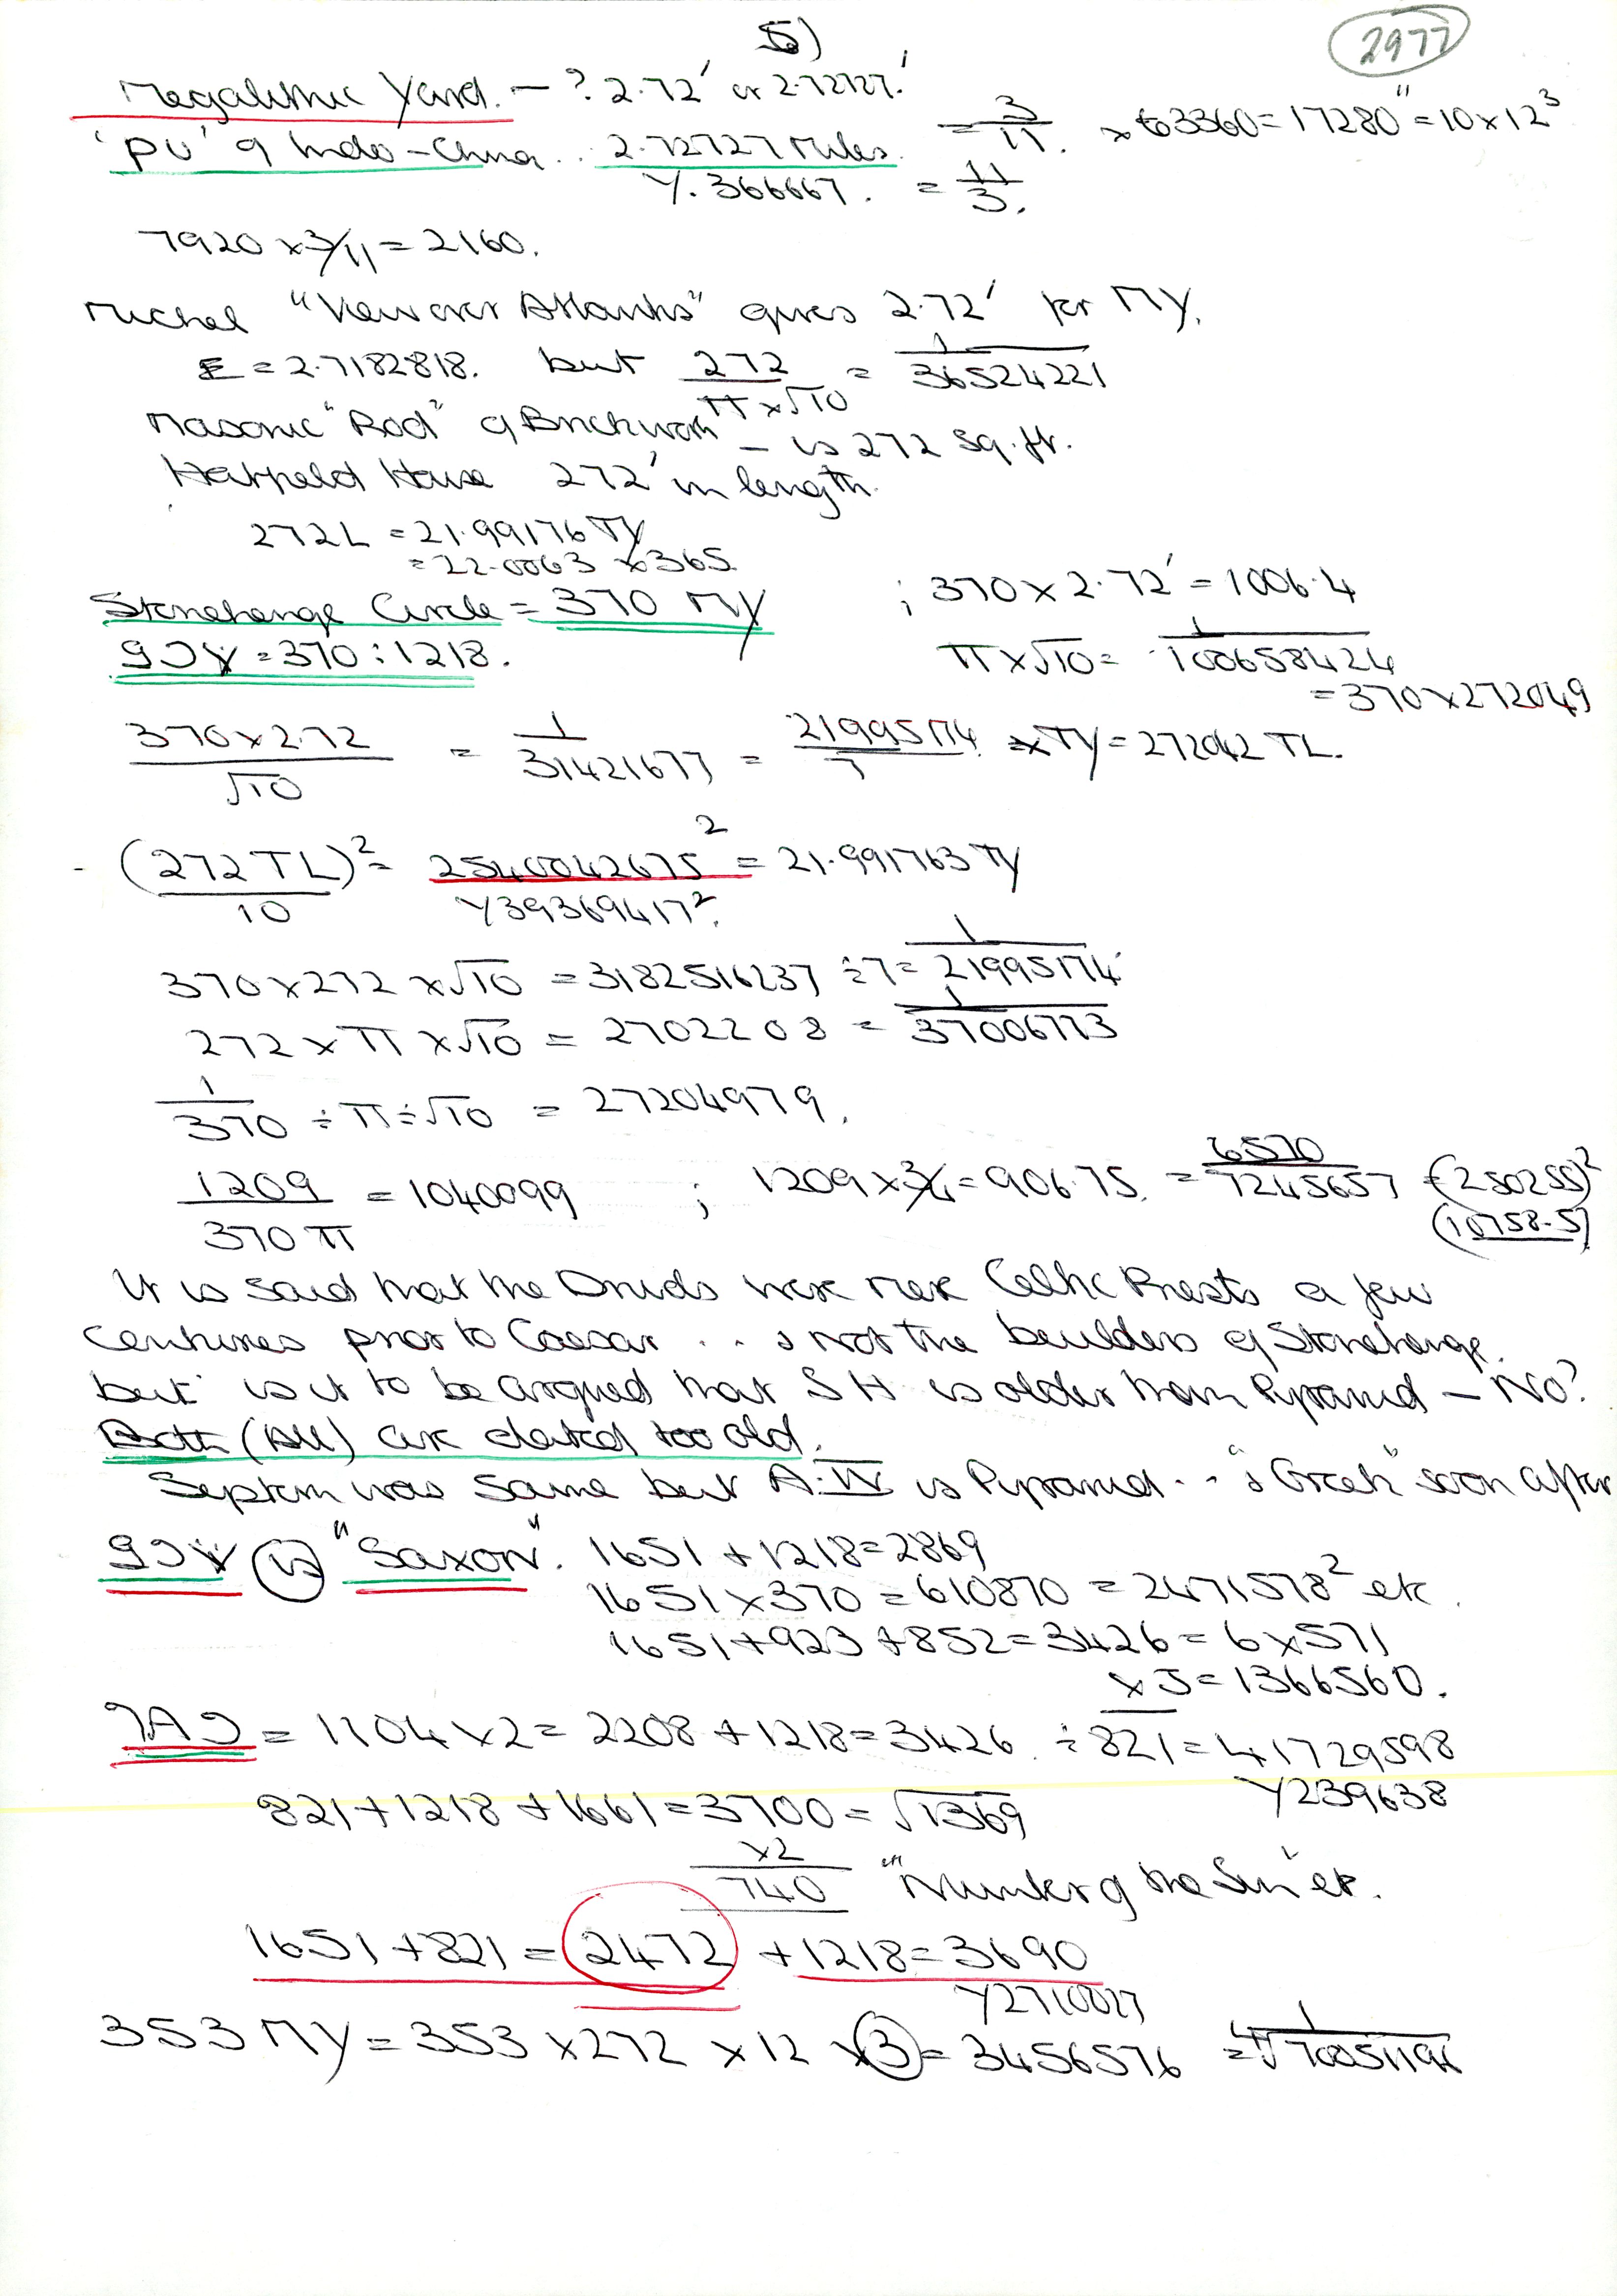 5)
2977
Megalithic Yard. — ? 2.72' or 2.72727.'
'PU' of Indo-China.. 2.72727 Miles. = 3/11. × 63360 = 17280" = 10 × 12³
Y. 366667. = 11/3.
7920 × 3/11 = 2160.
Michel "View over Atlantis" gives 2.72' for MY.
E = 2.7182818. but 272/π×√10 = 1/36524221
Masonic "Rod" of Brickwork — is 272 sq. ft.
Hatfield House 272' in length.
272L = 21.99176 TY
= 22.0063 × 365
Stonehenge Circle = 370 MY ; 370 × 2.72' = 1006.4
= 370 : 1218. π × √10 = 1/100658424
= 370 × 272049
370 × 2.72/√10 = 1/31421677 = 21995174/7 × TY = 272042 TL.
(272 TL)²/10 = 2540042675² = 21.991763 TY
Y39369417².
370 × 272 × √10 = 3182516237 ÷ 7 = 1/21995174
272 × π × √10 = 2702208 = 1/37006773
1/370 ÷ π ÷ √10 = 27204979.
1209/370π = 1040099 ; 1209 × 3/4 = 906.75. = 6570/7245657 = (250255)²
(10758.5)
It is said that the Druids were mere Celtic Priests a few
centuries prior to Caesar .. & not the builders of Stonehenge.
but is it to be argued that SH is older than Pyramid — No?
Both (All) are dated too old.
System was same but A:W is Pyramid .. & "Greek" soon after
"Saxon". 1651 + 1218 = 2869
1651 × 370 = 610870 = 2471578² etc.
1651 + 923 + 852 = 3426 = 6 × 571
× 5 = 1366560.
= 1104 × 2 = 2208 + 1218 = 3426 ÷ 821 = 41729598
Y239638
821 + 1218 + 1661 = 3700 = √1369
×2
740 "Number of the Sun" etc.
1651 + 821 = 2472 + 1218 = 3690
Y2710027
353 MY = 353 × 272 × 12 × 3 = 3456576 = ⁴√1/70051196